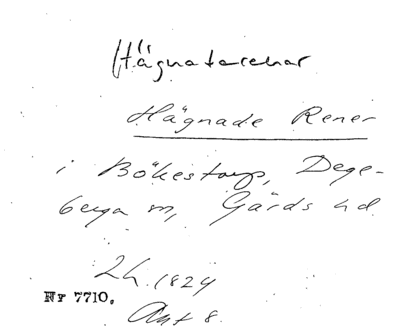 Hägnatarenar
Hägnade Rener
i Bökestorp, Dege-
berga sn, Gärds hd.
Lh. 1824
Nr 7710.
Akt 8.